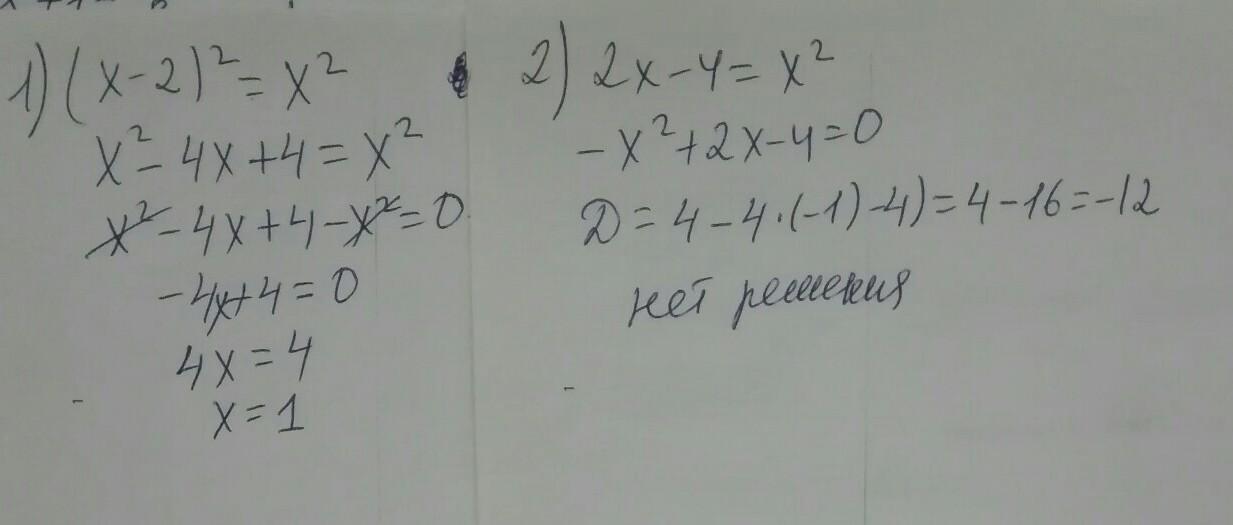 1) (x-2)² = x²
x² - 4x + 4 = x²
x² - 4x + 4 - x² = 0
-4x + 4 = 0
4x = 4
x = 1
2) 2x - 4 = x²
-x² + 2x - 4 = 0
D = 4 - 4·(-1) -4) = 4 - 16 = -12
нет решения